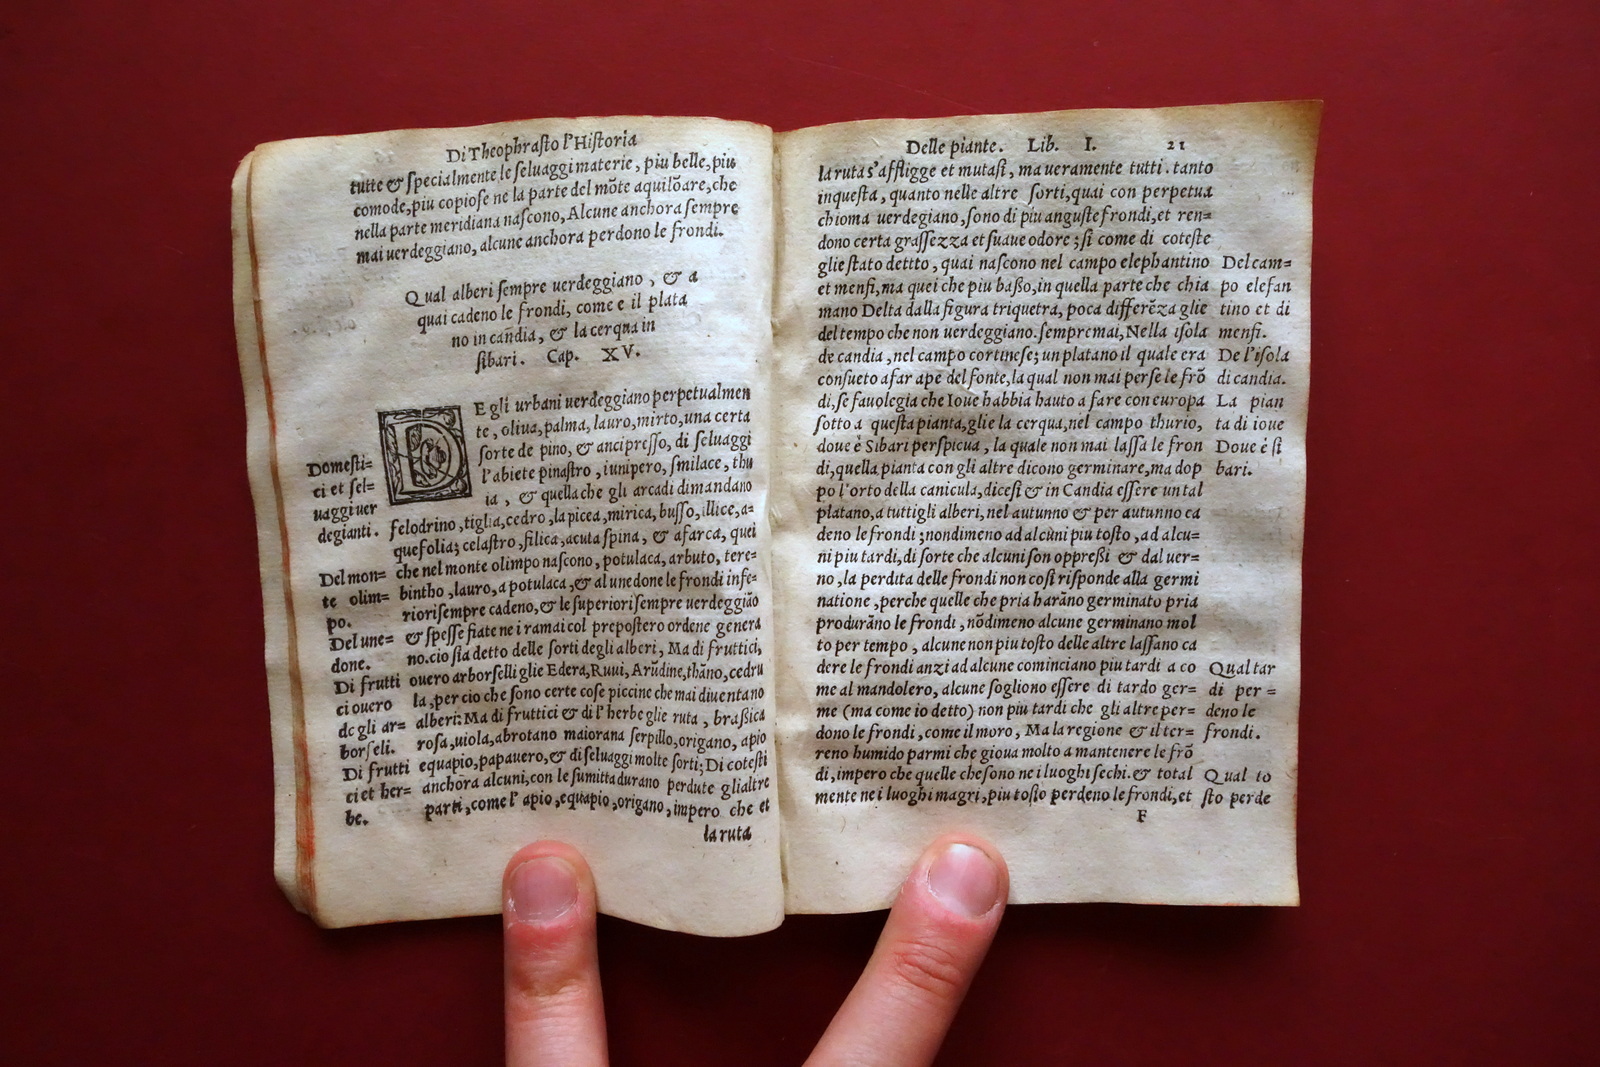 Di Theophraſto l'Hiſtoria
tutte & ſpecialmente le ſeluaggi materie, piu belle, piu
comode, piu copioſe ne la parte del mõte aquilõare, che
nella parte meridiana naſcono, Alcune anchora ſempre
mai uerdeggiano, alcune anchora perdono le frondi.
Qual alberi ſempre uerdeggiano, & a
quai cadeno le frondi, come e il plata
no in candia, & la cerqua in
ſibari. Cap. XV.
DE gli urbani uerdeggiano perpetualmen
te, oliua, palma, lauro, mirto, una certa
ſorte de pino, & ancipreſſo, di ſeluaggi
l'abiete pinaſtro, iunipero, ſmilace, thu
ia, & quella che gli arcadi dimandano
felodrino, tiglia, cedro, la picea, mirica, buſſo, illice, a=
quefolia; celaſtro, filica, acuta ſpina, & afarca, quei
che nel monte olimpo naſcono, potulaca, arbuto, tere=
bintho, lauro, a potulaca, & al unedone le frondi infe=
riori ſempre cadeno, & le ſuperiori ſempre uerdeggião
& ſpeſſe fiate ne i ramai col prepoſtero ordene genera
no. cio ſia detto delle ſorti degli alberi, Ma di fruttici,
ouero arborſelli glie Edera, Ruui, Arũdine, thãno, cedru
la, per cio che ſono certe coſe piccine che mai diuentano
alberi: Ma di fruttici & di l'herbe glie ruta, braſſica
roſa, uiola, abrotano maiorana ſerpillo, origano, apio
equapio, papauero, & di ſeluaggi molte ſorti; Di coteſti
anchora alcuni, con le ſumitta durano perdute gli altre
parti, come l'apio, equapio, origano, impero che et
la ruta
Domeſti=
ci et ſel=
uaggi uer
degianti.
Del mon=
te olim=
po.
Del une=
done.
Di frutti
ci ouero
de gli ar=
borſeli.
Di frutti
ci et her=
be.
Delle piante. Lib. I. 21
la ruta s'affligge et mutaſi, ma ueramente tutti. tanto
in queſta, quanto nelle altre ſorti, quai con perpetua
chioma uerdegiano, ſono di piu anguſte frondi, et ren=
dono certa graſſezza et ſuaue odore; ſi come di coteſte
glie ſtato dettto, quai naſcono nel campo elephantino
et menfi, ma quei che piu baſſo, in quella parte che chia
mano Delta dalla figura triquetra, poca differẽza glie
del tempo che non uerdeggiano. ſempremai, Nella iſola
de candia, nel campo cortineſe; un platano il quale era
conſueto a far ape del fonte, la qual non mai perſe le frõ
di, ſe fauolegia che Ioue habbia hauto a fare con europa
ſotto a queſta pianta, glie la cerqua, nel campo thurio,
doue è Sibari perſpicua, la quale non mai laſſa le fron
di, quella pianta con gli altre dicono germinare, ma dop
po l'orto della canicula, diceſi & in Candia eſſere un tal
platano, a tutti gli alberi, nel autunno & per autunno ca
deno le frondi; nondimeno ad alcũni piu toſto, ad alcu=
ni piu tardi, di ſorte che alcuni ſon oppreſſi & dal uer=
no, la perdita delle frondi non coſi riſponde alla germi
natione, perche quelle che pria harãno germinato pria
produrãno le frondi, nõdimeno alcune germinano mol
to per tempo, alcune non piu toſto delle altre laſſano ca
dere le frondi anzi ad alcune cominciano piu tardi a co
me al mandolero, alcune ſogliono eſſere di tardo ger=
me (ma come io detto) non piu tardi che gli altre per=
dono le frondi, come il moro, Ma la regione & il ter=
reno humido parmi che gioua molto a mantenere le frõ
di, impero che quelle che ſono ne i luoghi ſechi. & total
mente ne i luoghi magri, piu toſto perdeno le frondi, et
F
Del cam=
po elefan
tino et di
menfi.
De l'iſola
di candia.
La pian
ta di ioue
Doue è ſi
bari.
Qual tar
di per=
deno le
frondi.
Qual to
ſto perde